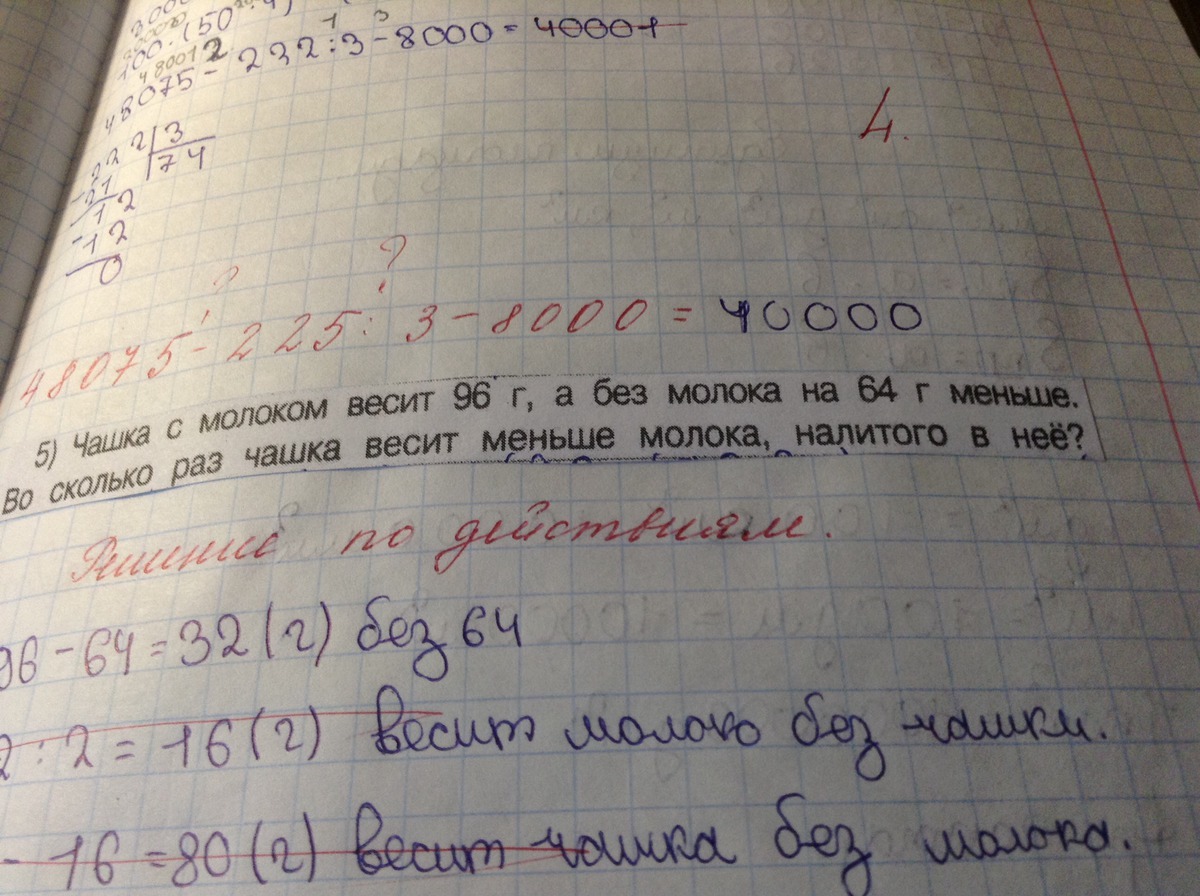 100·(50
48001 2
1 3
48075 - 232 : 3 - 8000 = 40001
222 | 3
21 | 74
12
12
0
4.
? ?
48075 - 225 : 3 - 8000 = 40000
5) Чашка с молоком весит 96 г, а без молока на 64 г меньше.
Во сколько раз чашка весит меньше молока, налитого в неё?
Решение по действиям.
96 - 64 = 32 (г) без 64
2 : 2 = 16 (г) весит молоко без чашки.
- 16 = 80 (г) весит чашка без молока.